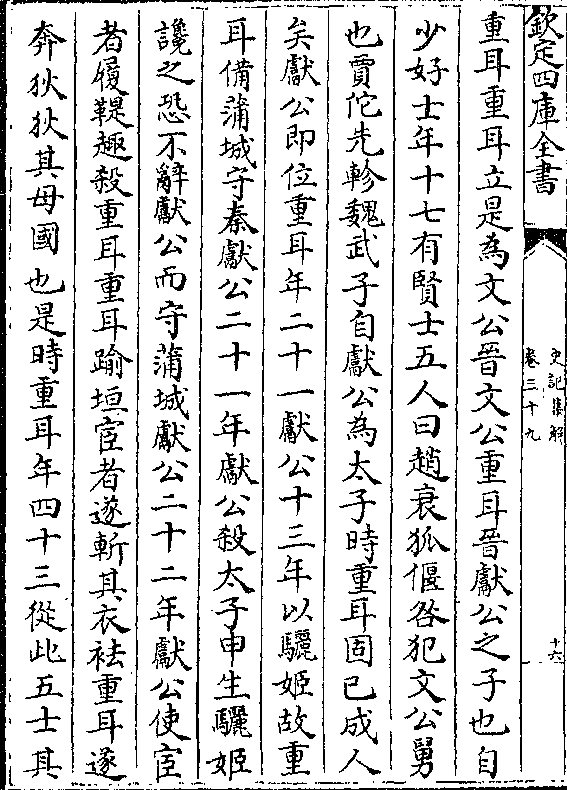 欽定四庫全書
史記集解
卷三十九
十六
重耳重耳立是為文公晉文公重耳晉獻公之子也自
少好士年十七有賢士五人曰趙衰狐偃咎犯文公舅
也賈佗先軫魏武子自獻公為太子時重耳固已成人
矣獻公即位重耳年二十一獻公十三年以驪姬故重
耳備蒲城守秦獻公二十一年獻公殺太子申生驪姬
讒之恐不辭獻公而守蒲城獻公二十二年獻公使宦
者履鞮趣殺重耳重耳踰垣宦者遂斬其衣袪重耳遂
奔狄狄其母國也是時重耳年四十三從此五士其